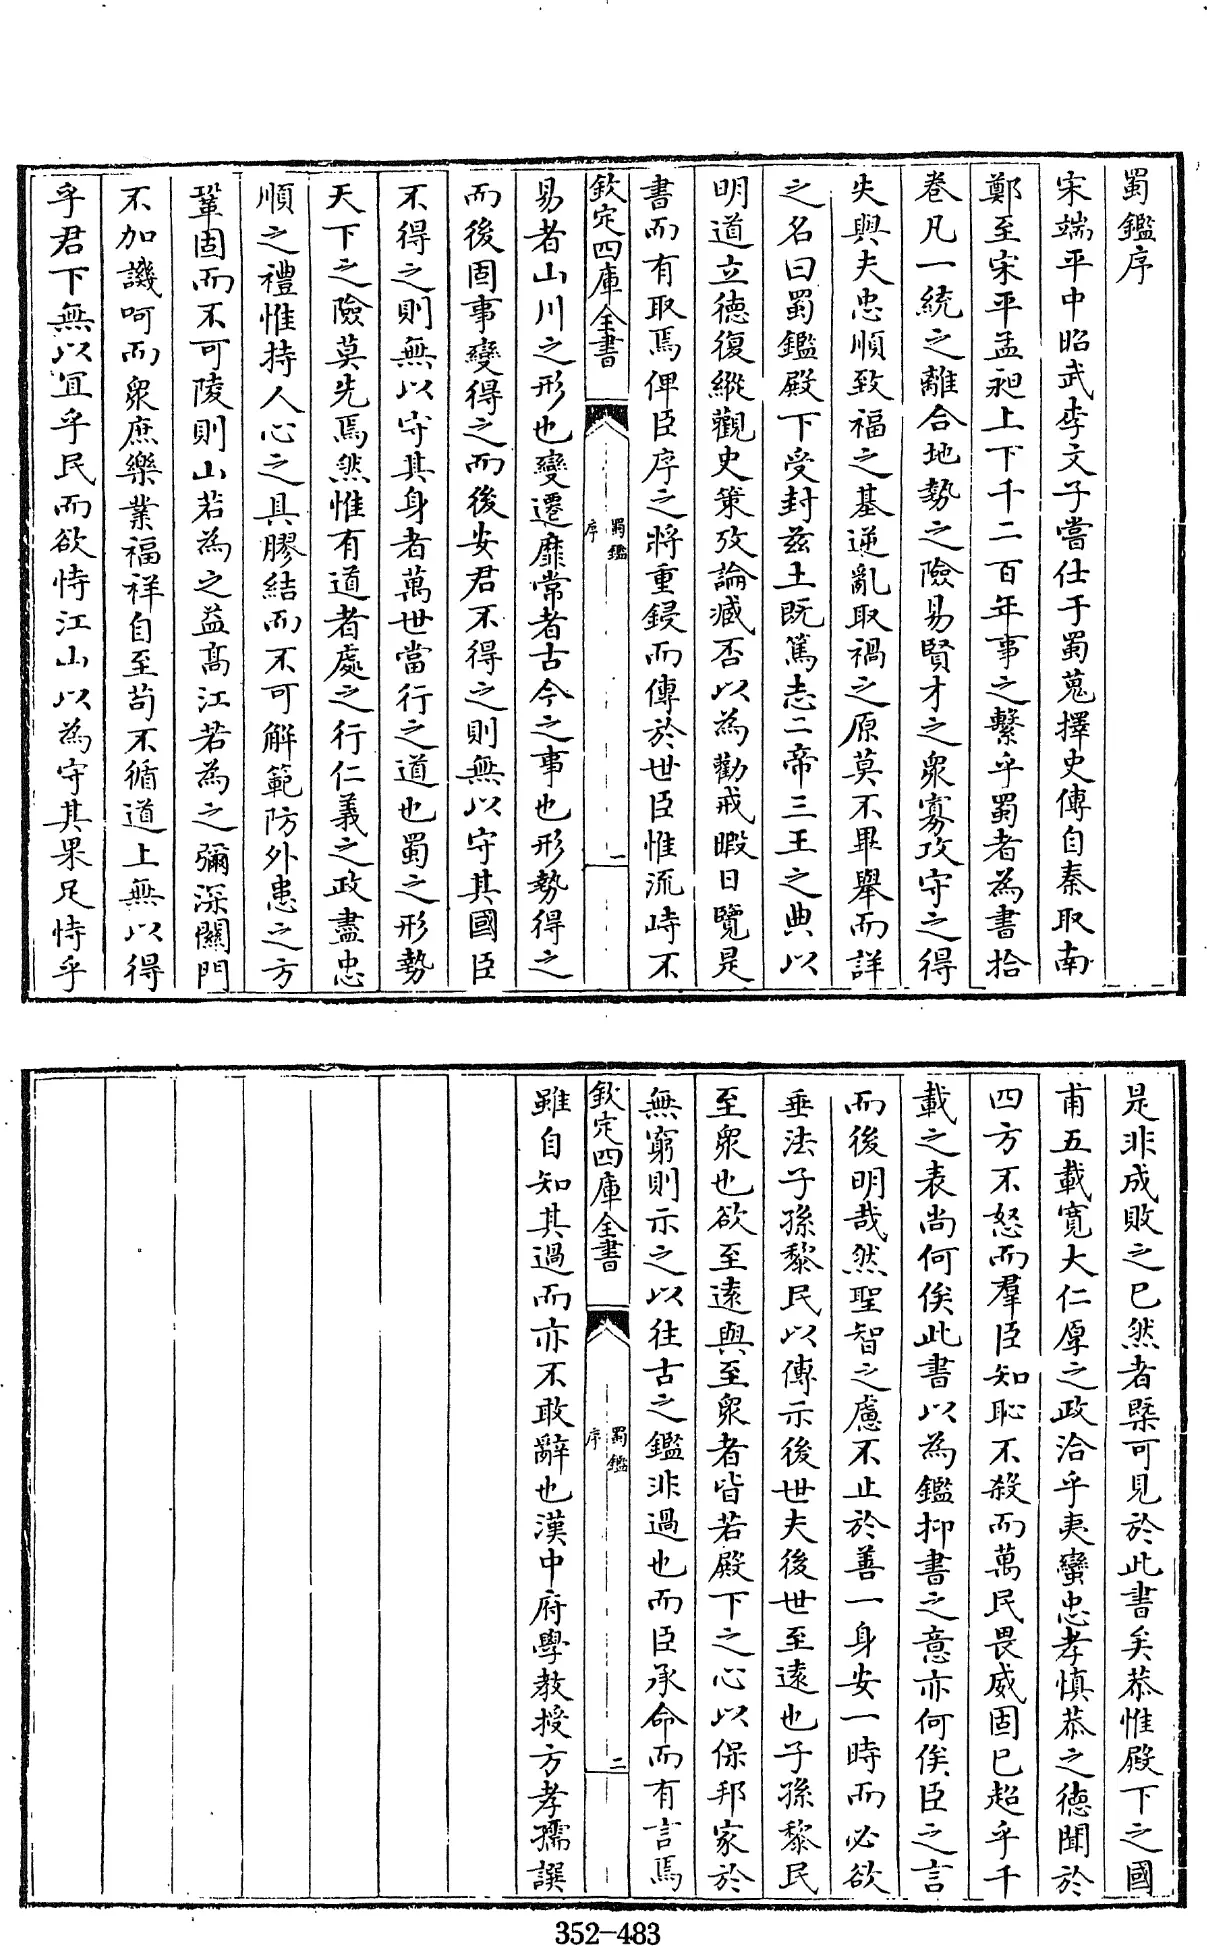 蜀鑑序
宋端平中昭武李文子嘗仕于蜀蒐擇史傳自秦取南
鄭至宋平孟昶上下千二百年事之繫乎蜀者為書拾
卷凡一統之離合地勢之險易賢才之衆寡攻守之得
失與夫忠順致福之基逆亂取禍之原莫不畢舉而詳
之名曰蜀鑑殿下受封茲土既篤志二帝三王之典以
明道立德復縱觀史策攷論臧否以為勸戒暇日覽是
書而有取焉俾臣序之將重鋟而傳於世臣惟流峙不
欽定四庫全書
蜀鑑
序
一
易者山川之形也變遷靡常者古今之事也形勢得之
而後固事變得之而後安君不得之則無以守其國臣
不得之則無以守其身者萬世當行之道也蜀之形勢
天下之險莫先焉然惟有道者處之行仁義之政盡忠
順之禮惟持人心之具膠結而不可解範防外患之方
鞏固而不可陵則山若為之益高江若為之彌深關門
不加譏呵而衆庶樂業福祥自至苟不循道上無以得
乎君下無以宜乎民而欲恃江山以為守其果足恃乎
是非成敗之已然者槩可見於此書矣恭惟殿下之國
甫五載寛大仁厚之政洽乎夷蠻忠孝慎恭之德聞於
四方不怒而羣臣知恥不殺而萬民畏威固已超乎千
載之表尚何俟此書以為鑑抑書之意亦何俟臣之言
而後明哉然聖智之慮不止於善一身安一時而必欲
垂法子孫黎民以傳示後世夫後世至遠也子孫黎民
至衆也欲至遠與至衆者皆若殿下之心以保邦家於
無窮則示之以往古之鑑非過也而臣承命而有言焉
欽定四庫全書
蜀鑑
序
二
雖自知其過而亦不敢辭也漢中府學教授方孝孺譔
352-483